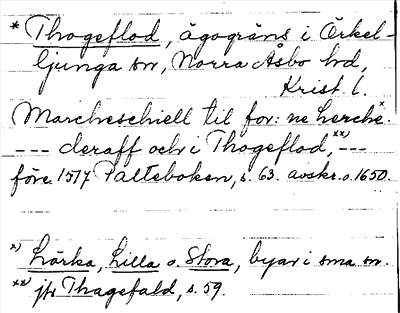 * Thogeflod, ägogräns i Örkel-
ljunga sn, Norra Åsbo hd,
Krist. l.
Marcheschiell til for: ne Lerche x)
--- deraff och i Thogeflod, xx) ---
före 1517 Palteboken, s. 63. avskr. o. 1650.
x) Lärka, Lilla o. Stora, byar i sma sn.
xx) jfr Thagefald, s. 59.